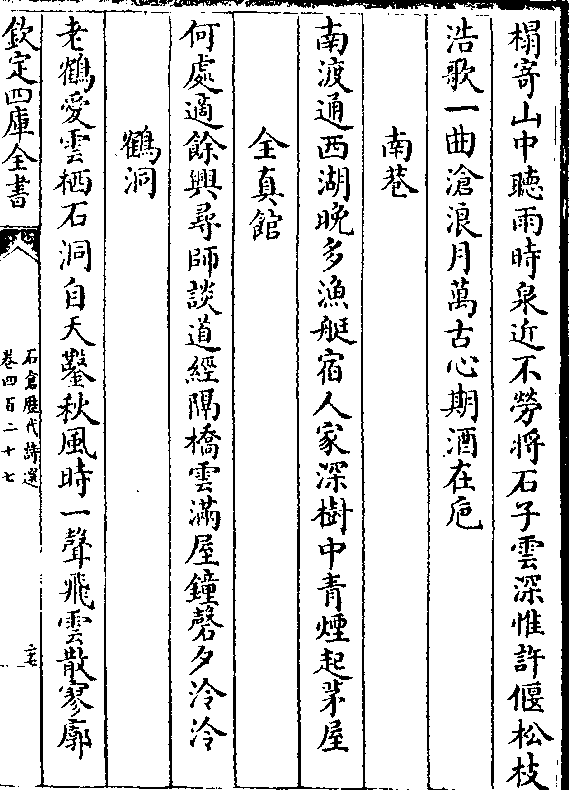 榻寄山中聽雨時泉近不勞將石子雲深惟許偃松枝
浩歌一曲滄浪月萬古心期酒在巵
南巷
南渡通西湖晚多漁艇宿人家深樹中青煙起茅屋
全真館
何處適餘興尋師談道經隔橋雲滿屋鐘磬夕泠泠
鶴洞
老鶴愛雲栖石洞自天鑿秋風時一聲飛雲散寥廓
欽定四庫全書
石倉歷代詩選
卷四百二十七